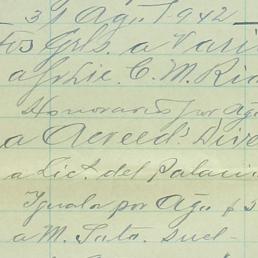 31 Agto 1942
Grls. a Vari
a flic. C. M. Ri
Honorarios por Ago
a Acreeds. Dive
a Lic. del Palaci
Iguala por Ago $ 3
a M. Soto. suel-